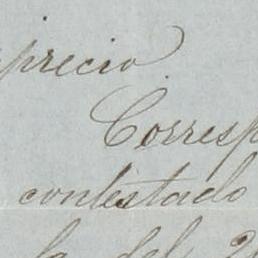 precio.
Corresp
contestado
la del 2